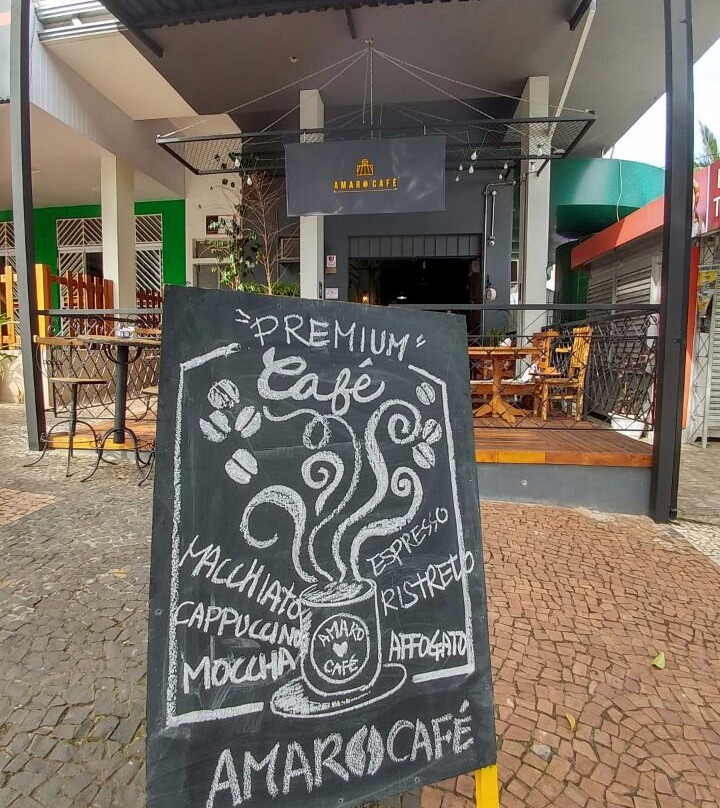 AMARO CAFÉ
"PREMIUM"
Café
MACCHIATO
CAPPUCCINO
MOCCHA
ESPRESSO
RISTRETO
AFFOGATO
AMARO
CAFÉ
AMAROCAFÉ